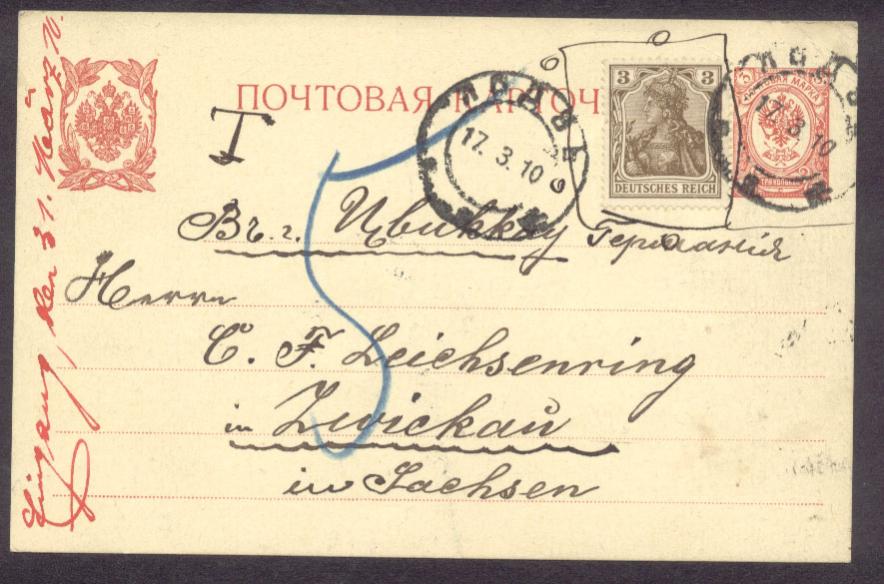 ПОЧТОВАЯ КАРТОЧ
T
3 3
DEUTSCHES REICH
ЛОДЗЬ
17. 3. 10
ЛОДЗЬ
17. 3. 10
МАРКА
5
Въ г. Цвиккау Германія
Herrn
C. F. Leichsenring
in Zwickau
in Sachsen
Eingang, den 31. März